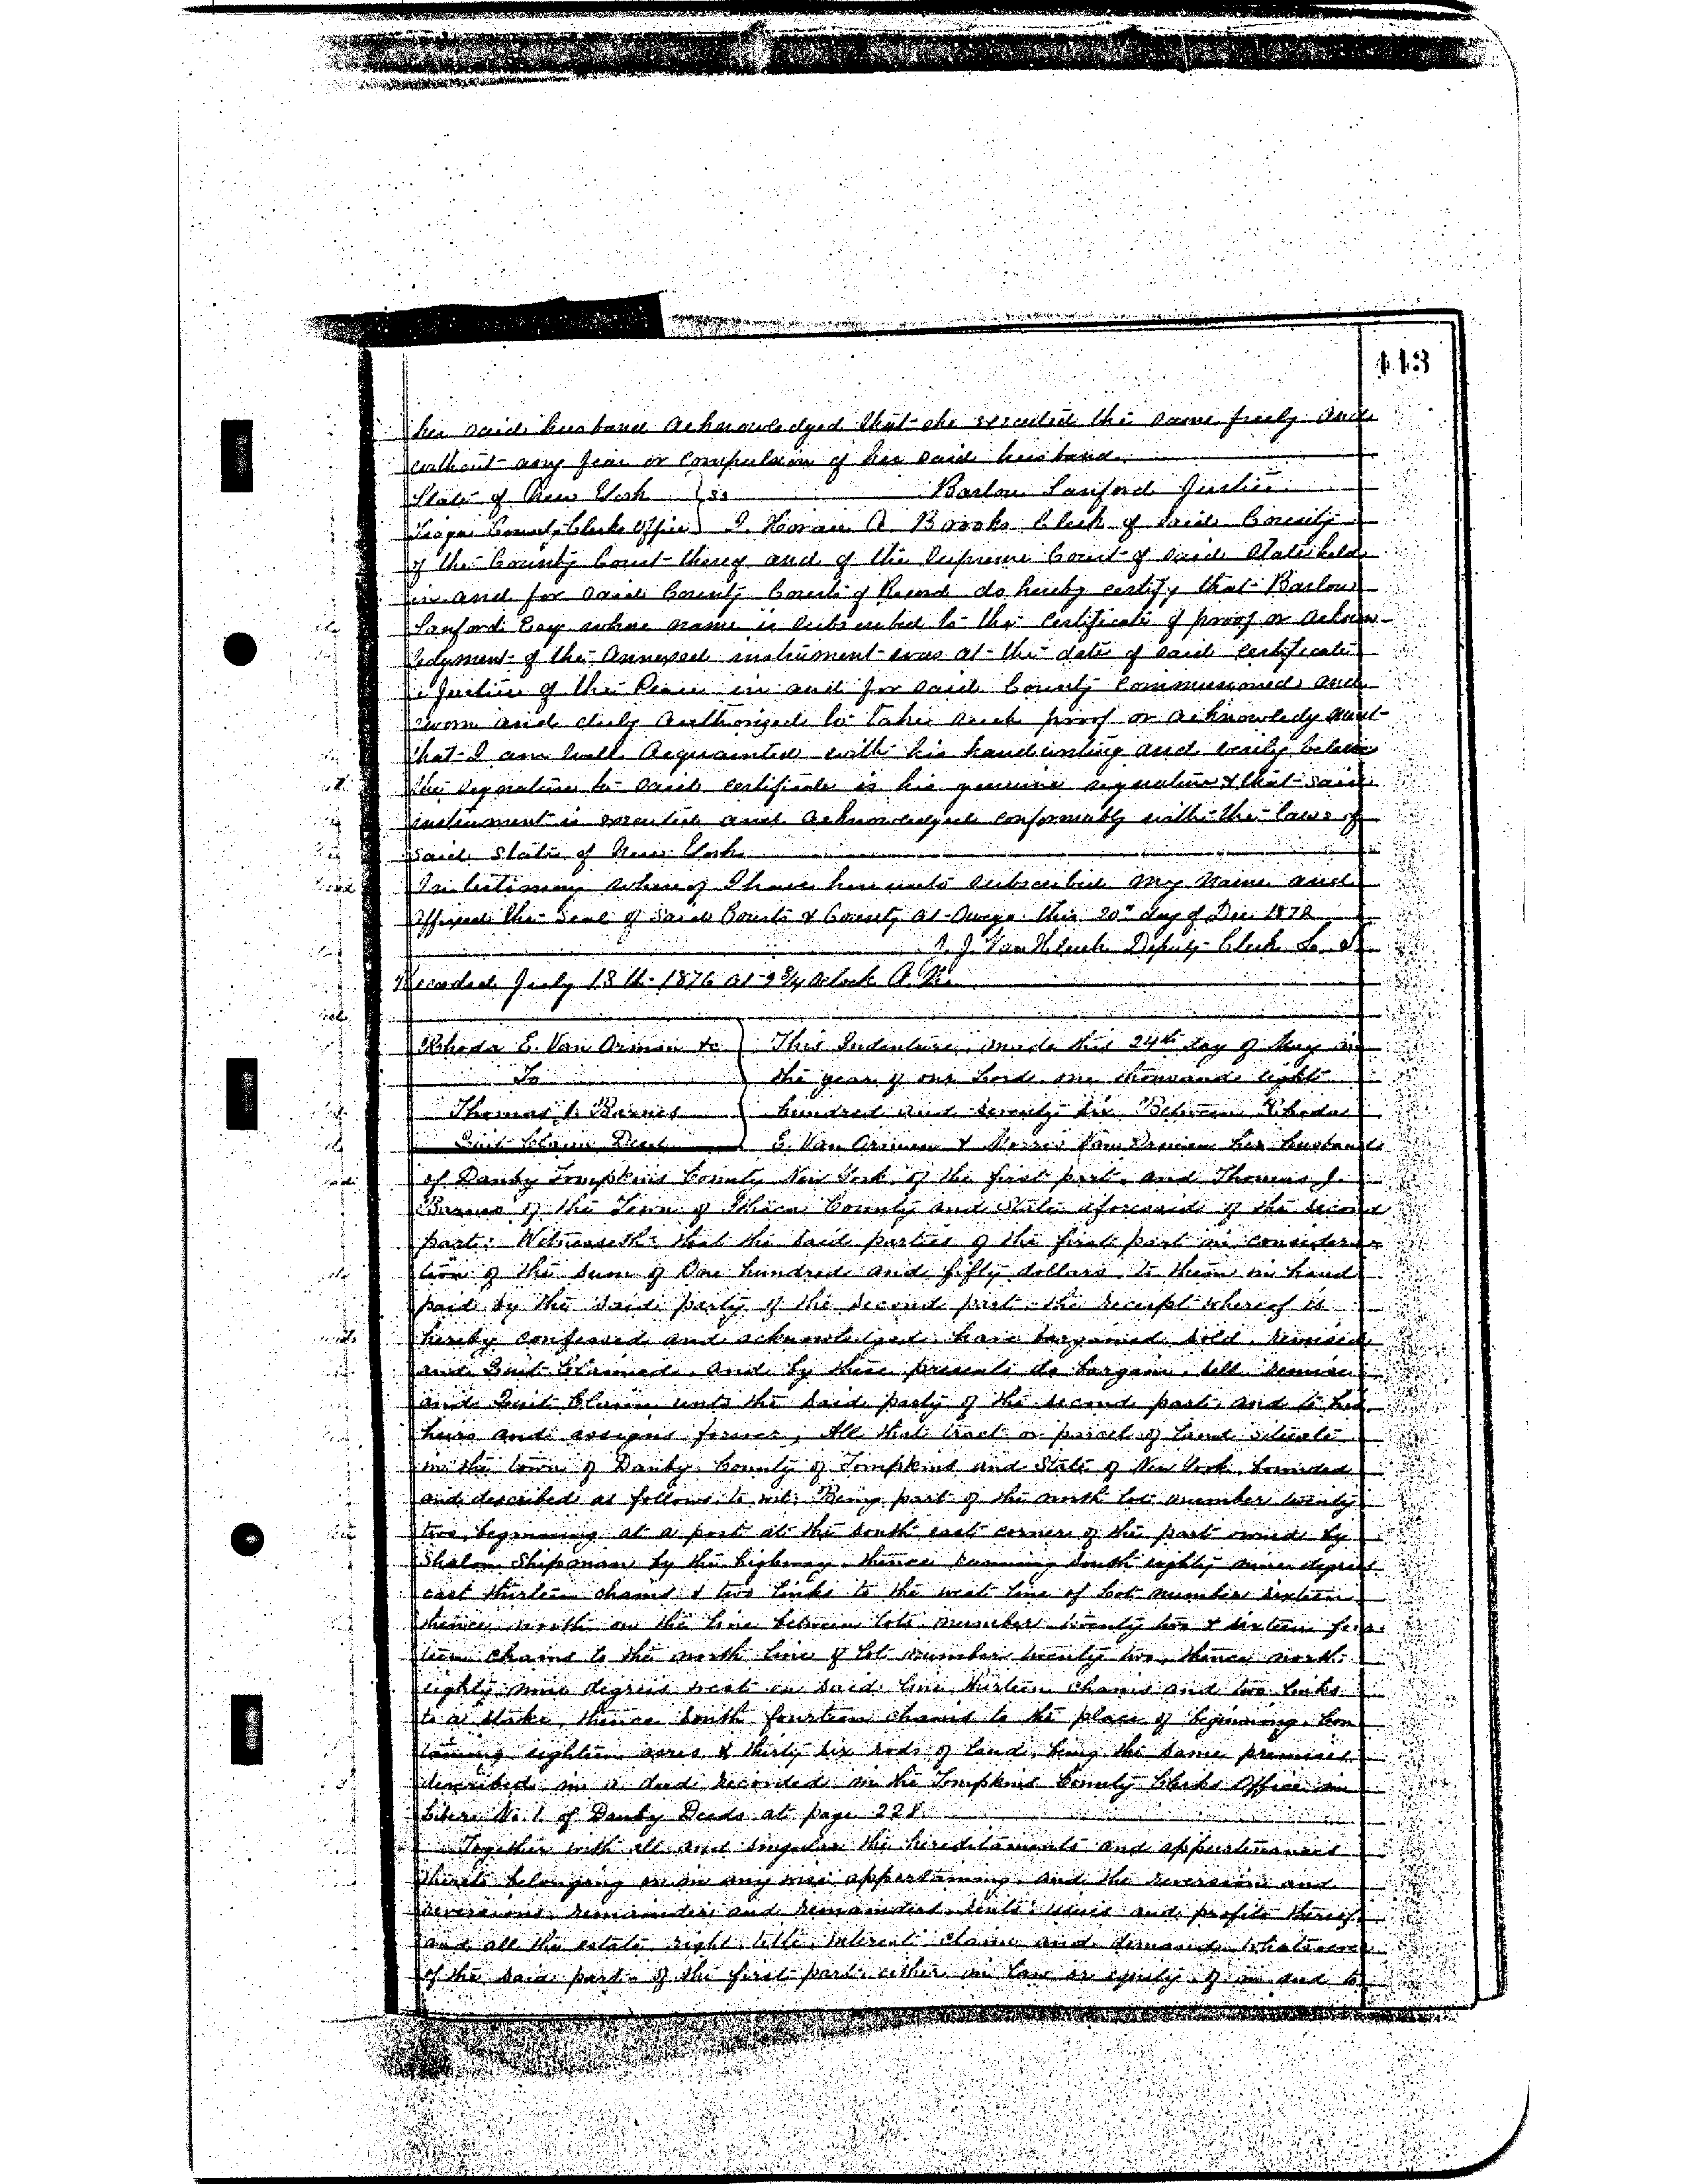 443
her said husband acknowledged that she executed the same freely and
without any fear or compulsion of her said husband.
State of New York } ss Barlow Sanford Justice
Tioga County Clerks Office } I. Horace A Brooks Clerk of said County
of the County Court thereof and of the Supreme Court of said State held
in and for said County Courts of Record do hereby certify that Barlow
Sanford Esq whose name is subscribed to the certificate of proof or acknow-
ledgment of the annexed instrument was at the date of said certificate
a Justice of the Peace in and for said County commissioned and
sworn and duly authorized to take such proof or acknowledgment
that I am well acquainted with his handwriting and verily believe
the signature to said certificate is his genuine signature & that said
instrument is executed and acknowledged conformably with the laws of
said State of New York
In testimony whereof I have hereunto subscribed my name and
affixed the Seal of said Courts & County at Owego this 20" day of Dec 1872
J. Van Kleeck Deputy Clerk L. S.
Recorded July 18th 1876 at 9 3/4 oclock A. M.
Rhoda E. Van Orman &c } This Indenture, made this 24th day of May in
To the year of our Lord one thousand eight
Thomas J. Barnes hundred and seventy six Between Rhoda
Quit Claim Deed E. Van Orman & Norris Van Orman her husband
of Danby Tompkins County New York of the first part, and Thomas J.
Barnes of the Town of Ithaca County and State aforesaid of the second
part: Witnesseth that the said parties of the first part in considera
tion of the sum of One hundred and fifty dollars to them in hand
paid by the said party of the second part the receipt whereof is
hereby confessed and acknowledged have bargained sold, remised
and Quit Claimed, and by these presents do bargain, sell remise
and Quit Claim unto the said party of the second part, and to his
heirs and assigns forever, All that tract or parcel of Land situate
in the town of Danby County of Tompkins and State of New York bounded
and described as follows to wit: Being part of the north lot number twenty
two, beginning at a post at the south east corner of the part owned by
Shalon Shipman by the highway thence running South eighty nine degrees
east thirteen chains & two links to the west line of lot number sixteen
thence north on the line between lots number twenty two & sixteen four
teen chains to the north line of lot number twenty two, thence north
eighty nine degrees west on said line thirteen chains and two links
to a stake, thence South fourteen chains to the place of beginning Con
taining eighteen acres & thirty six rods of land, being the same premises
described in a deed recorded in the Tompkins County Clerks Office in
Liber No. 1 of Danby Deeds at page 228
Together with all and singular the hereditaments and appurtenances
thereto belonging or in any wise appertaining and the reversion and
reversions remainder and remainders rents issues and profits thereof
and all the estate right title, interest claim and demand whatsoever
of the said part of the first part either in law or equity of in and to